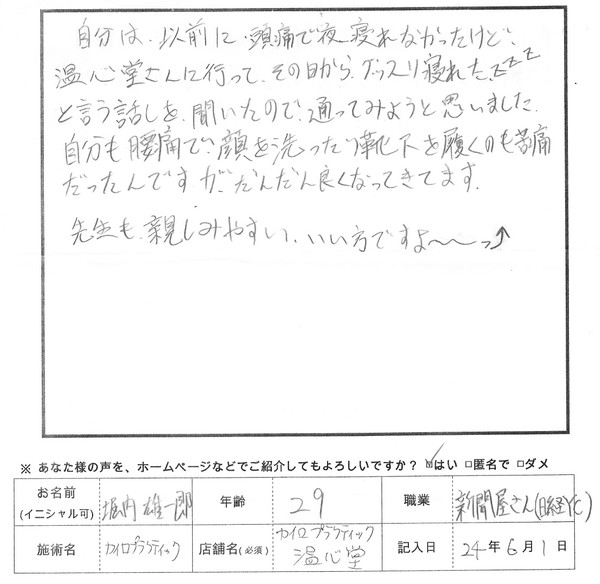 自分は、以前に、頭痛で夜寝れなかったけど、
温心堂さんに行って、その日から、グッスリ寝れたzzz
と言う話しを、聞いたので、通ってみようと思いました。
自分も腰痛で、顔を洗ったり靴下を履くのも苦痛
だったんですが、だんだん良くなってきてます。
先生も、親しみやすい、いい方ですよ〜〜っ↗
※ あなた様の声を、ホームページなどでご紹介してもよろしいですか？ ☑はい □匿名で □ダメ
お名前 (イニシャル可) 堀内 雄一郎 年齢 29 職業 新聞屋さん(日経YC)
施術名 カイロプラティック 店舗名(必須) カイロプラティック 温心堂 記入日 24年6月1日